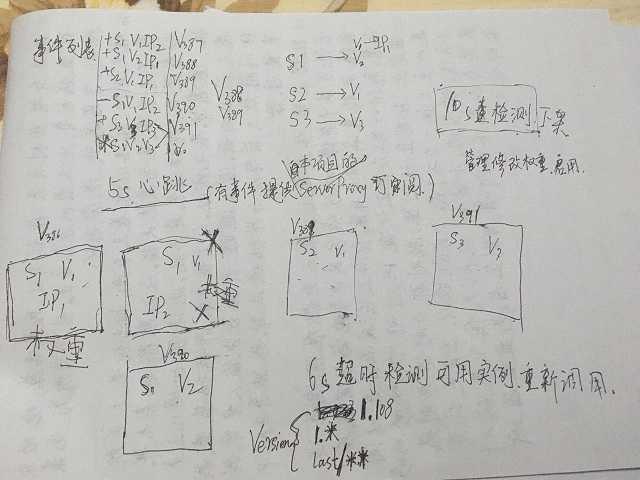 事件列表
+S1 V1 IP2 V387
+S1 V2 IP1 V388
+S2 V1 IP1 V389
-S1 V1 IP2 V390
+S3 V3 IP3 V391
S1 V2 V3
V388
V389
S1 → V1-IP1
V2
S2 → V1
S3 → V3
10s查检测 下架
管理修改权重.启用.
5s心跳 (有事件提供 ServerProxy可实调.)
本项目的
V386
S1 V1
IP1
权重
S1 V1
IP2
权重
V389
S2 V1
V391
S3 V3
V390
V2
6s超时检测可用实例.重新调用.
Version
1.108
1.米
Last/米米